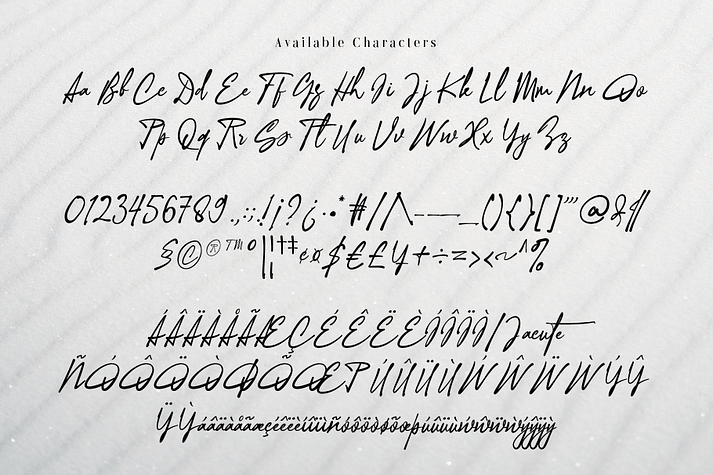 Available Characters
Aa Bb Cc Dd Ee Ff Gg Hh Ii Jj Kk Ll Mm Nn Oo
Pp Qq Rr Ss Tt Uu Vv Ww Xx Yy Zz
0123456789.,:;!¡?¿·•*#/\-–—_(){}[]‚"'@&¶
§©®™°|¦†‡¢¤$€£¥+÷=><~^%
ÁÂÄÀÅÃÆÇÉÊËÈÍÎÏÌ/Jacute
ÑÓÔÖÒØÕŒÞÚÛÜÙẂŴẄẀÝŶ
ŸỲáâäàåãæçéêëèíîïìñóôöòøõœþúûüùẃŵẅẁýŷÿỳ